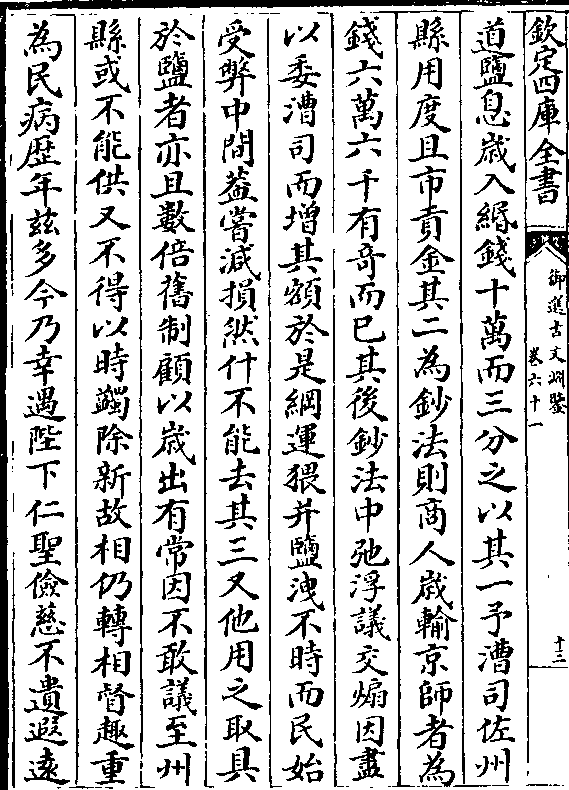 欽定四庫全書
御選古文淵鑒
卷六十一
十三
道鹽息歲入緡錢十萬而三分之以其一予漕司佐州
縣用度且市貢金其二為鈔法則商人歲輸京師者為
錢六萬六千有奇而已其後鈔法中弛浮議交煽因盡
以委漕司而增其額於是綱運猥并鹽洩不時而民始
受弊中間蓋嘗減損然什不能去其三又他用之取具
於鹽者亦且數倍舊制顧以歲出有常因不敢議至州
縣或不能供又不得以時蠲除新故相仍轉相督趣重
為民病歴年兹多今乃幸遇陛下仁聖儉慈不遺遐遠